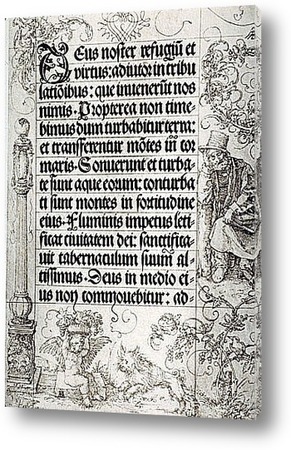 Deus noster refugiū et
virtus: adiutor in tribu
lationibus: que inuenerūt nos
nimis. Propterea non time
bimus dum turbabitur terra:
et transferentur mōtes in cor
maris. Sonuerunt et turba-
te sunt aque eorum: conturba
ti sunt montes in fortitudine
eius. Fluminis impetus leti
ficat ciuitatem dei: sanctifica-
uit tabernaculum suum al-
tissimus. Deus in medio ei-
us non commouebitur: ad-